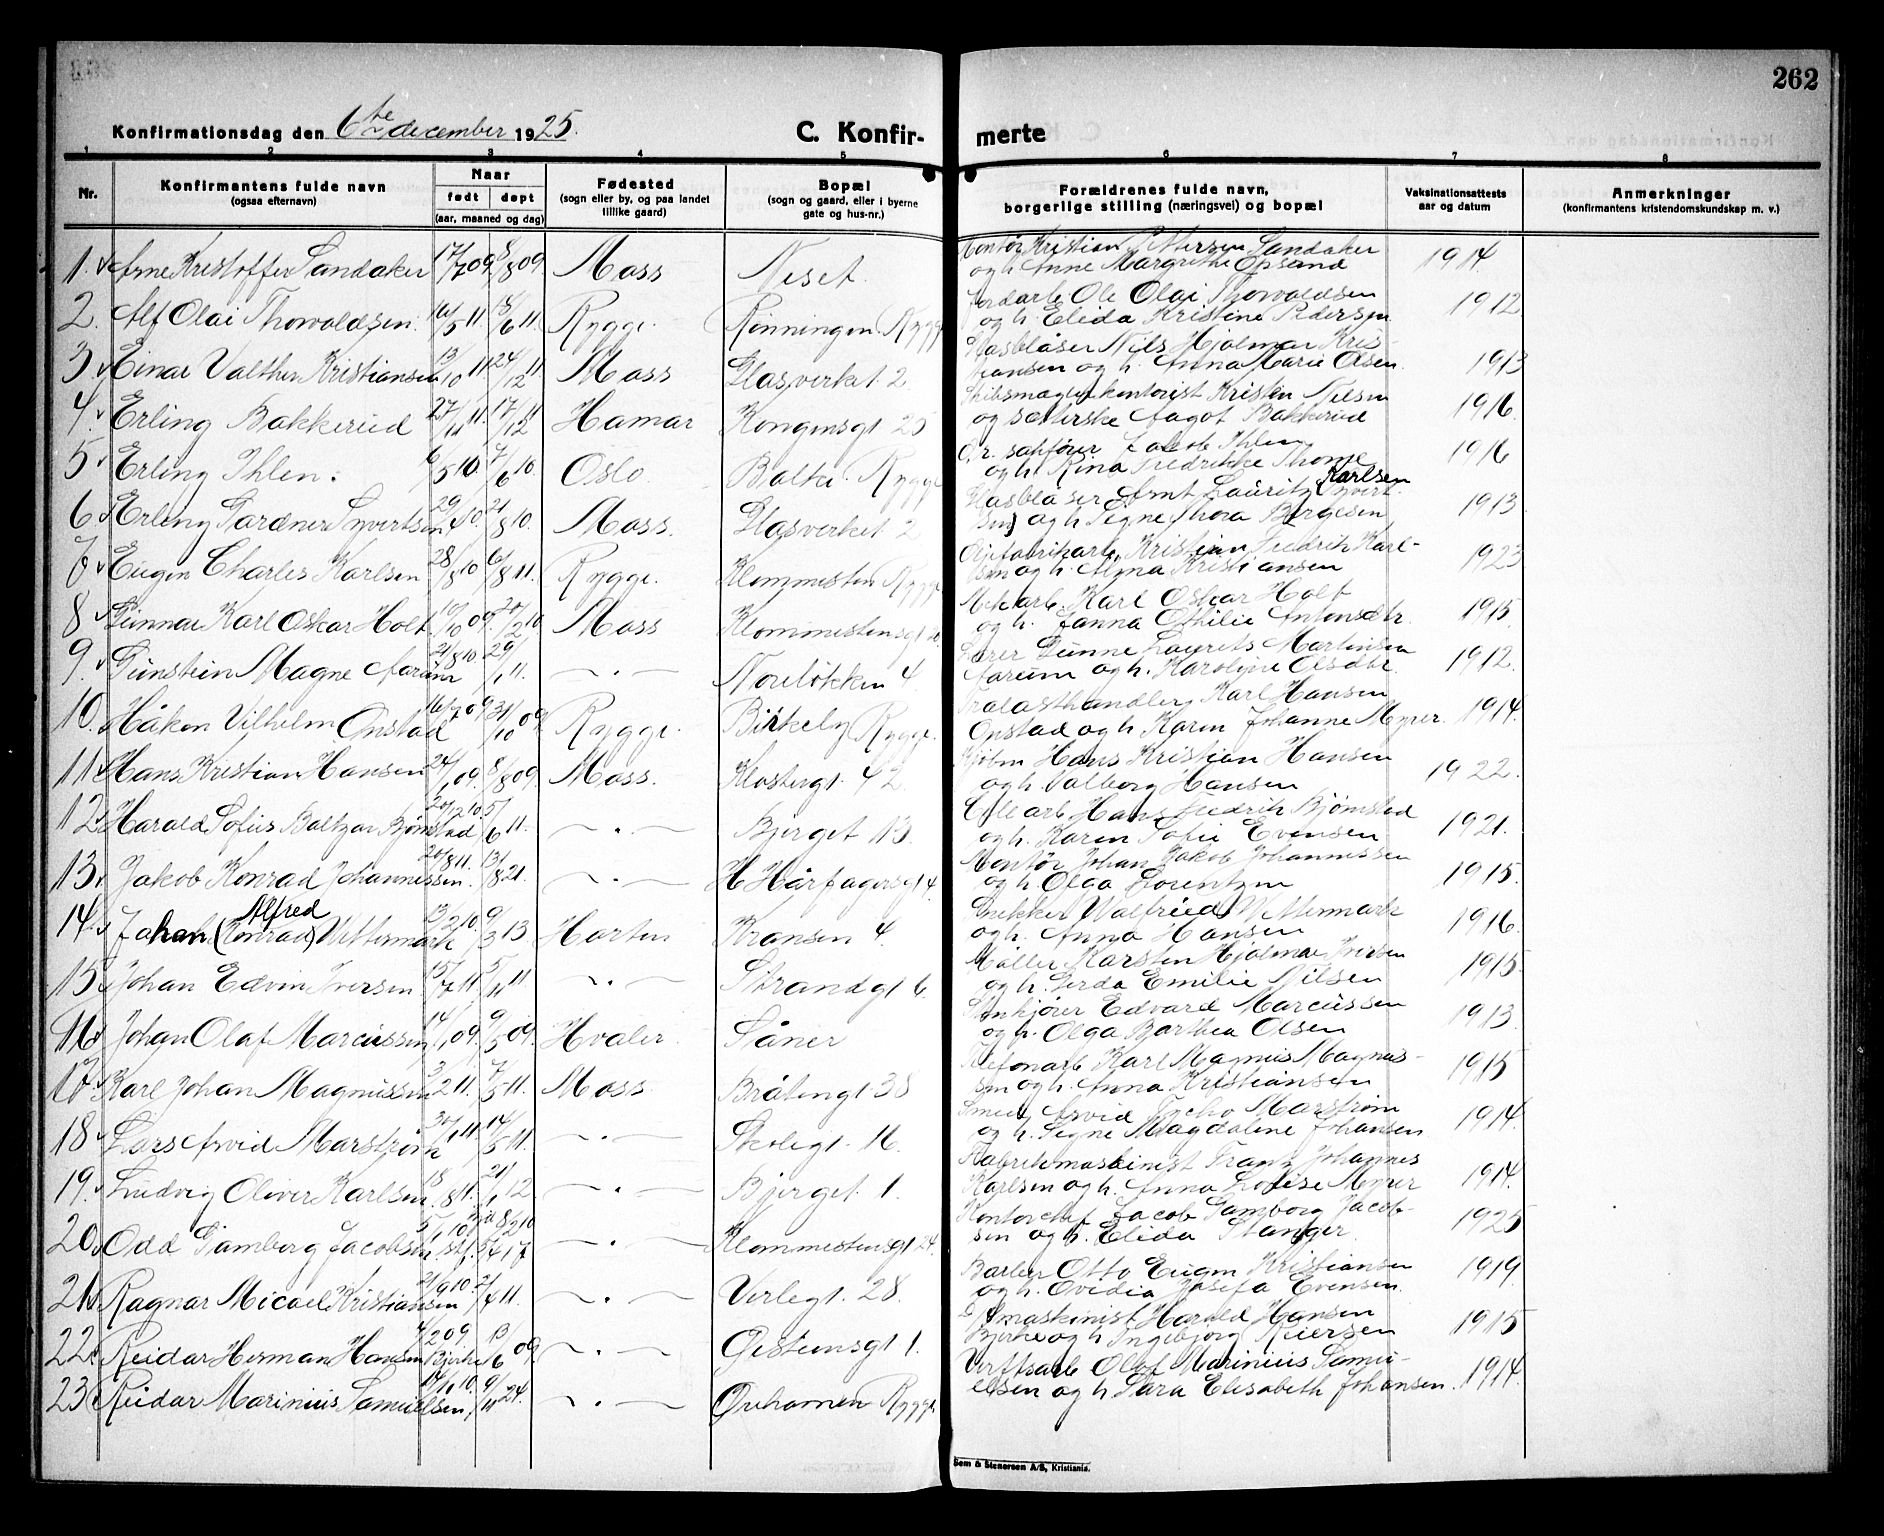 262
Konfirmationsdag den 6te december 1925.
C. Konfir- merte
1 2 3 4 5 6 7 8
Nr. Konfirmantens fulde navn (ogsaa efternavn) Naar født døpt (aar, maaned og dag) Fødested (sogn eller by, og paa landet tillike gaard) Bopæl (sogn og gaard, eller i byerne gate og hus-nr.) Forældrenes fulde navn, borgerlige stilling (næringsvei) og bopæl Vaksinationsattests aar og datum Anmerkninger (konfirmantens kristendomskundskap m. v.)
1. Arne Kristoffer Sandaker 17/7 09. 8/8 09 Moss Neset. Montør Kristian Pettersen Sandaker 1914
og h. Anne Margrethe Opsand
2. Alf Olai Thorvaldsen. 16/5 11. 18/6 11. Rygge. Rønningen Rygge Jordarb. Ole Olai Thorvaldsen 1912
og h. Elida Kristine Pedersen
3. Einar Valther Kristiansen 13/10 11 24/12 11 Moss Glasverket 2. Glasblåser Nils Hjalmar Kris-
tiansen og h. Anna Marie Olsen. 1913
4. Erling Bakkerud 27/11 11. 17/12 11 Hamar Kongensgt 25 Skibsmæglerkontorist Kristen Nilsen
og Sæterske Aagot Bakkerud 1916.
5. Erling Ihlen. 6/5 10. 7/6 10 Oslo. Balke. Rygge O.r. sakfører Jacob Ihlen 1916
og h. Kina Fredrikke Thorne
6. Erling Gardner Syvertsen 29/4 10. 21/8 10. Moss. Glasverket 2 Glasblåser Arnt Lauritz (Syvert- Karlsen
sen) og h. Signe Thora Børgesen 1913
7. Eugen Charles Karlsen 28/8 10 6/8 11. Rygge. Klommesten Rygge Oljefabrikarb. Kristian Fredrik Karl-
sen og h. Alma Kristiansen 1923
8. Gunnar Karl Oskar Holt 16/10 09. 20/2 10 Moss Klommestensgt Mek arb. Karl Oskar Holt
og h. Janna Othilie Antonsdtr. 1915.
9. Gunstein Magne Aarum 21/8 10. 29/1 11. — . — Noreløkken 4 Lærer Gunne Laurits Martinsen
Aarum og h. Karolyne Olsdtr 1912.
10. Håkon Vilhelm Onstad 16/7 09 31/10 09. Rygge. Birkely Rygge. Trælasthandler Karl Hansen
Onstad og h. Karen Johanne Myrer. 1914.
11. Hans Kristian Hansen 24/1 09. 8/8 09. Moss. Klostergt. 42 Hans Kristian Hansen
og h. Valborg Hansen 1922.
12. Harald Sofus Baltzar Bjørnstad 20/12 10. 5/6 11. — . — Bjerget 113. Hans Fredrik Bjørnstad
og h. Karen Sofie Evensen 1921.
13. Jakob Konrad Johannessen. 20/8 11. 13/8 21. — . — H Hårfagersgt 4. Montør Johan Jakob Johannessen
og h. Olga Lorentzen 1915.
14. Johan (Konrad) Alfred Wettermark 13/2 10. 9/3 13 Horten Kransen 4. Snekker Walfried Wettermark
og h. Anna Hansen 1916.
15. Johan Edvin Iversen 15/7 11. 5/11 11 — . — Strandgt 6. Møller Karsten Hjalmar Iversen
og h. Gerda Emilie Nilsen 1915
16. Johan Olaf Marcussen 14/1 09. 9/5 09. Hvaler. Såner Stenkjører Edvard Marcussen
og h. Olga Barthea Olsen 1913.
17. Karl Johan Magnussen 3/2 11. 7/5 11. Moss Bråtengt 38 Telefonarb Karl Magnus Magnus-
sen og h. Anna Kristiansen 1915
18. Lars Arvid Marstrøm 30/1 11. 14/5 11. — . — Skolegt. 16. Smed Arvid Tycho Marstrøm
og h. Signe Magdalene Johansen 1914.
19. Ludvig Oliver Karlsen. 18/8 11. 21/1 12 — . — Bjerget. 1. Fabrikmaskinist Frantz Johannes
Karlsen og h. Anna Lovise Myrer 1914.
20. Odd Gamborg Jacobsen. 5/1 10. 8/2 10 st.f. 5/4 17 — . — Klommestensgt 24. Kontorchef Jacob Gamborg Jacob-
sen og h. Elida Stanger 1925
21. Ragnar Micael Kristiansen 21/9 10. 2/4 11. — . — Verlegt. 28. Barber Otto Eugen Kristiansen
og h. Ovidia Josefa Evensen. 1919
22. Reidar Herman Hansen Bjerke 4/2 09 13/6 09. — . — Gestensgt 1. maskinist Harald Hansen
Bjerke og h Ingebjørg Reiersen 1915
23. Reidar Marinius Samuelsen, 14/1 10. 9/11 24. — . — Ørehamen Rygge Verftsarb Olaf Marinius Samu-
elsen og h Sara Elisabeth Johansen. 1914.
Sem & Stenersen A/S, Kristiania.